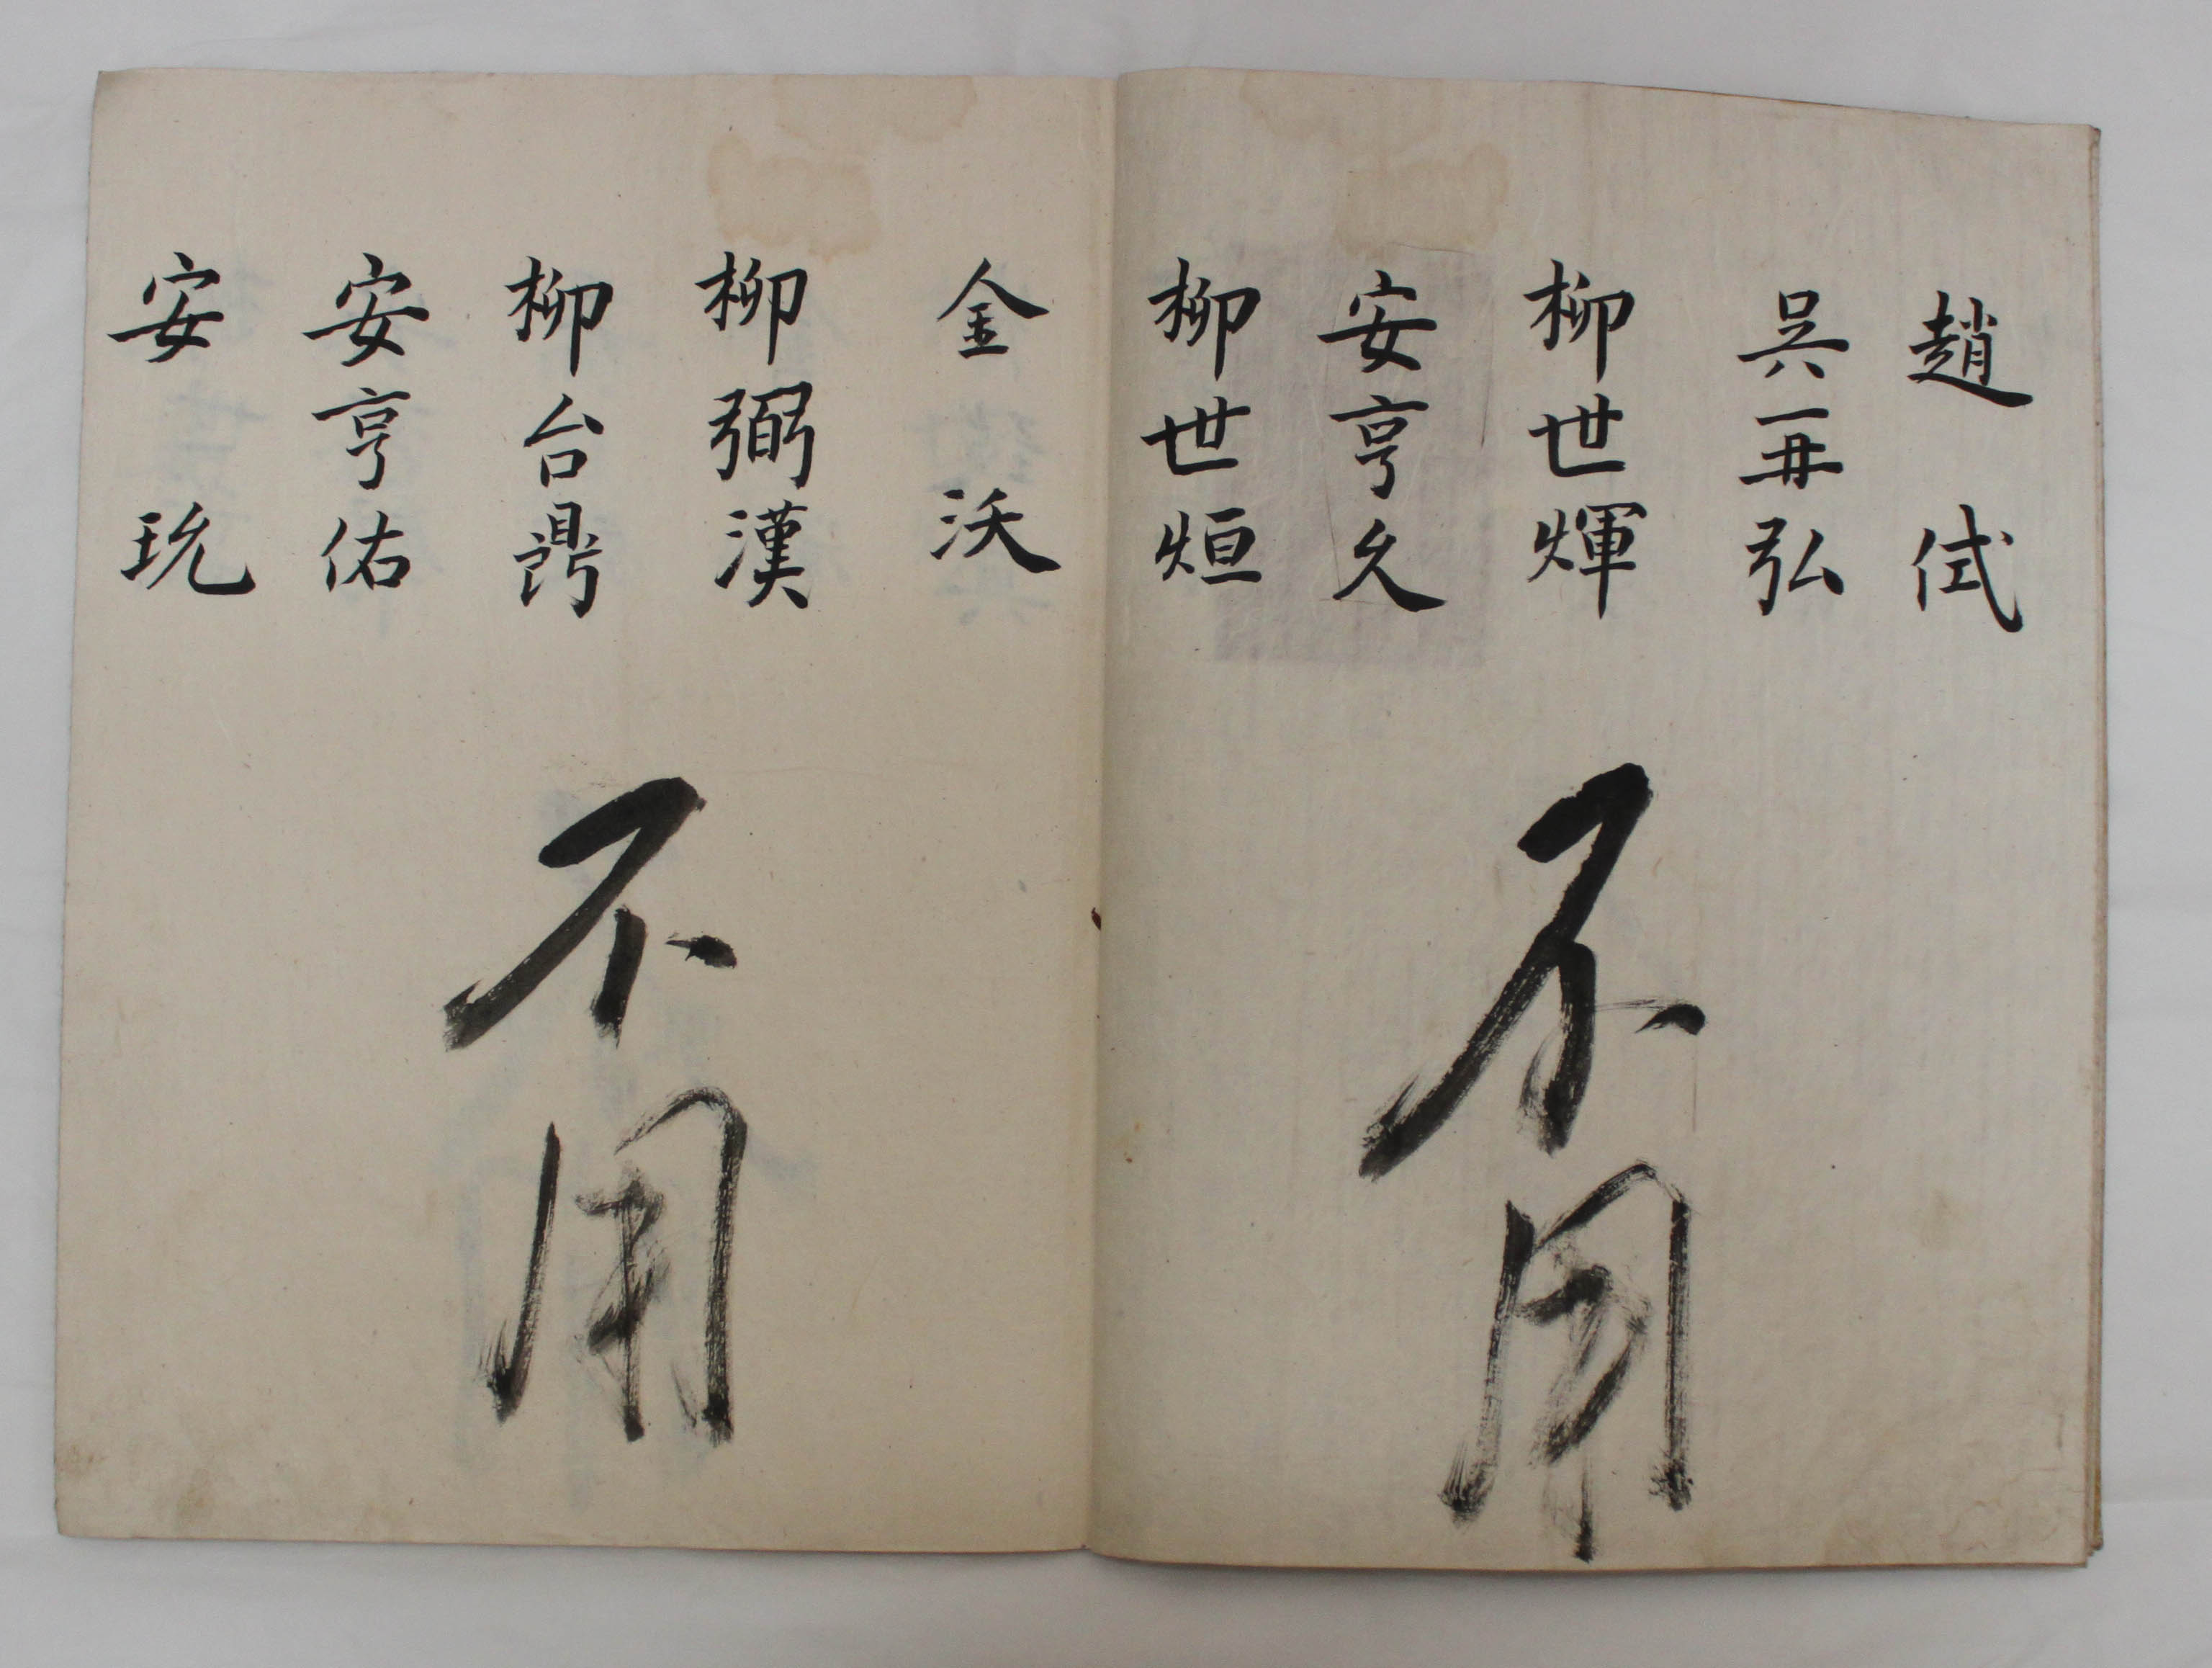 趙 侙
吳再弘
柳世輝
安亨久
柳世烜
不用
金 沃
柳弼漢
柳台鼎
安亨佑
安 玧
不用